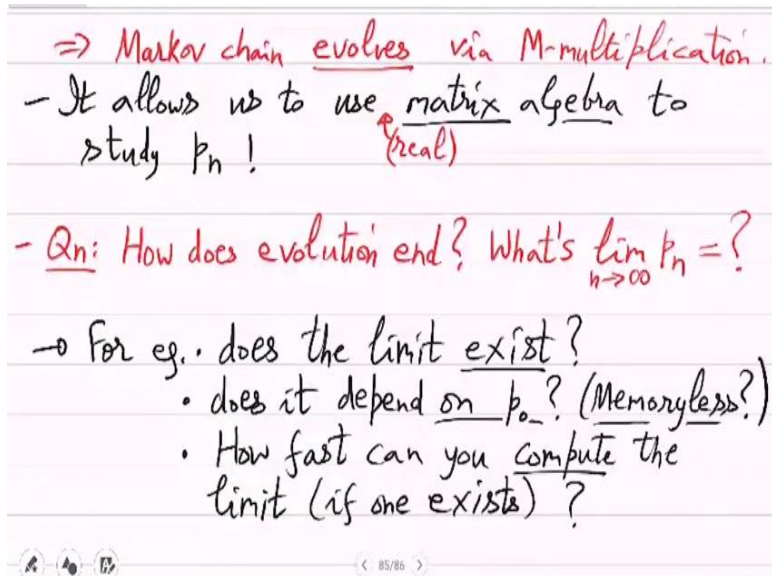 ⇒ Markov chain evolves via M-multiplication.
- It allows us to use matrix algebra to
study pₙ !
(real)
- Qn: How does evolution end? What's lim pₙ = ?
n→∞
→ For eg. • does the limit exist?
• does it depend on p₀? (Memoryless?)
• How fast can you compute the
limit (if one exists) ?
85/86